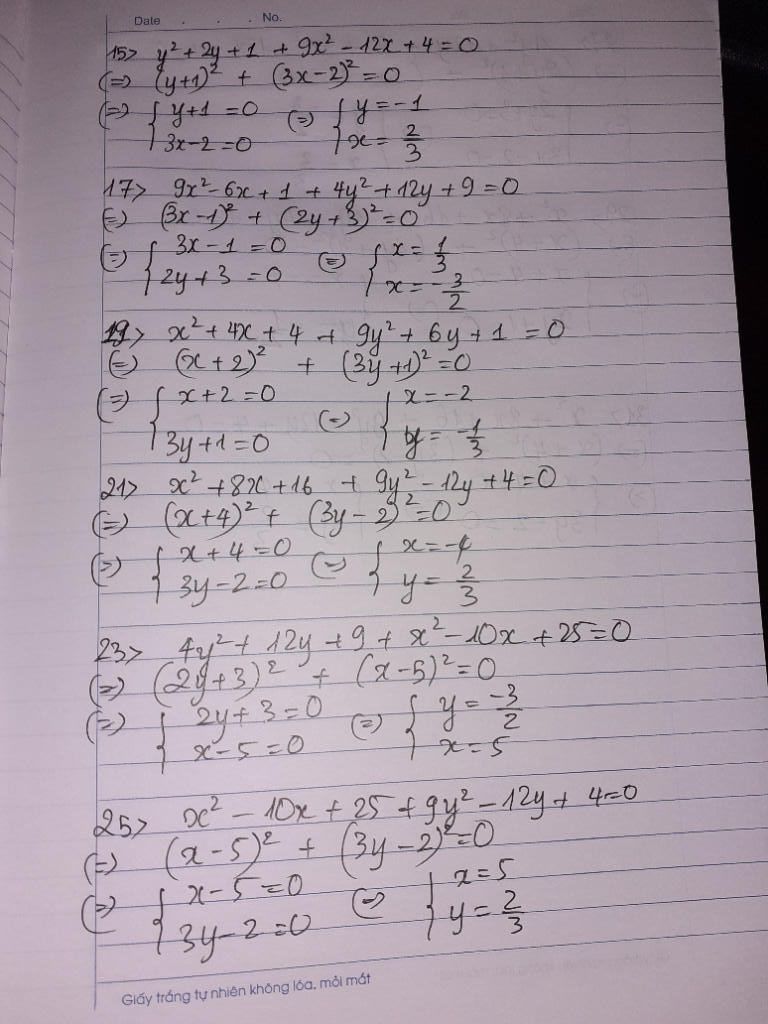 Date . . . No.
15> y² + 2y + 1 + 9x² - 12x + 4 = 0
(=) (y+1)² + (3x-2)² = 0
(=) { y+1 = 0 (=) { y = -1
3x-2 = 0 x = 2/3
17> 9x² - 6x + 1 + 4y² + 12y + 9 = 0
(=) (3x-1)² + (2y+3)² = 0
(=) { 3x-1 = 0 (=) { x = 1/3
2y+3 = 0 x = -3/2
19> x² + 4x + 4 + 9y² + 6y + 1 = 0
(=) (x+2)² + (3y+1)² = 0
(=) { x+2 = 0 (=) { x = -2
3y+1 = 0 y = -1/3
21> x² + 8x + 16 + 9y² - 12y + 4 = 0
(=) (x+4)² + (3y-2)² = 0
(=) { x+4 = 0 (=) { x = -4
3y-2 = 0 y = 2/3
23> 4y² + 12y + 9 + x² - 10x + 25 = 0
(=) (2y+3)² + (x-5)² = 0
(=) { 2y+3 = 0 (=) { y = -3/2
x-5 = 0 x = 5
25> x² - 10x + 25 + 9y² - 12y + 4 = 0
(=) (x-5)² + (3y-2)² = 0
(=) { x-5 = 0 (=) { x = 5
3y-2 = 0 y = 2/3
Giấy trắng tự nhiên không lóa, mỏi mắt